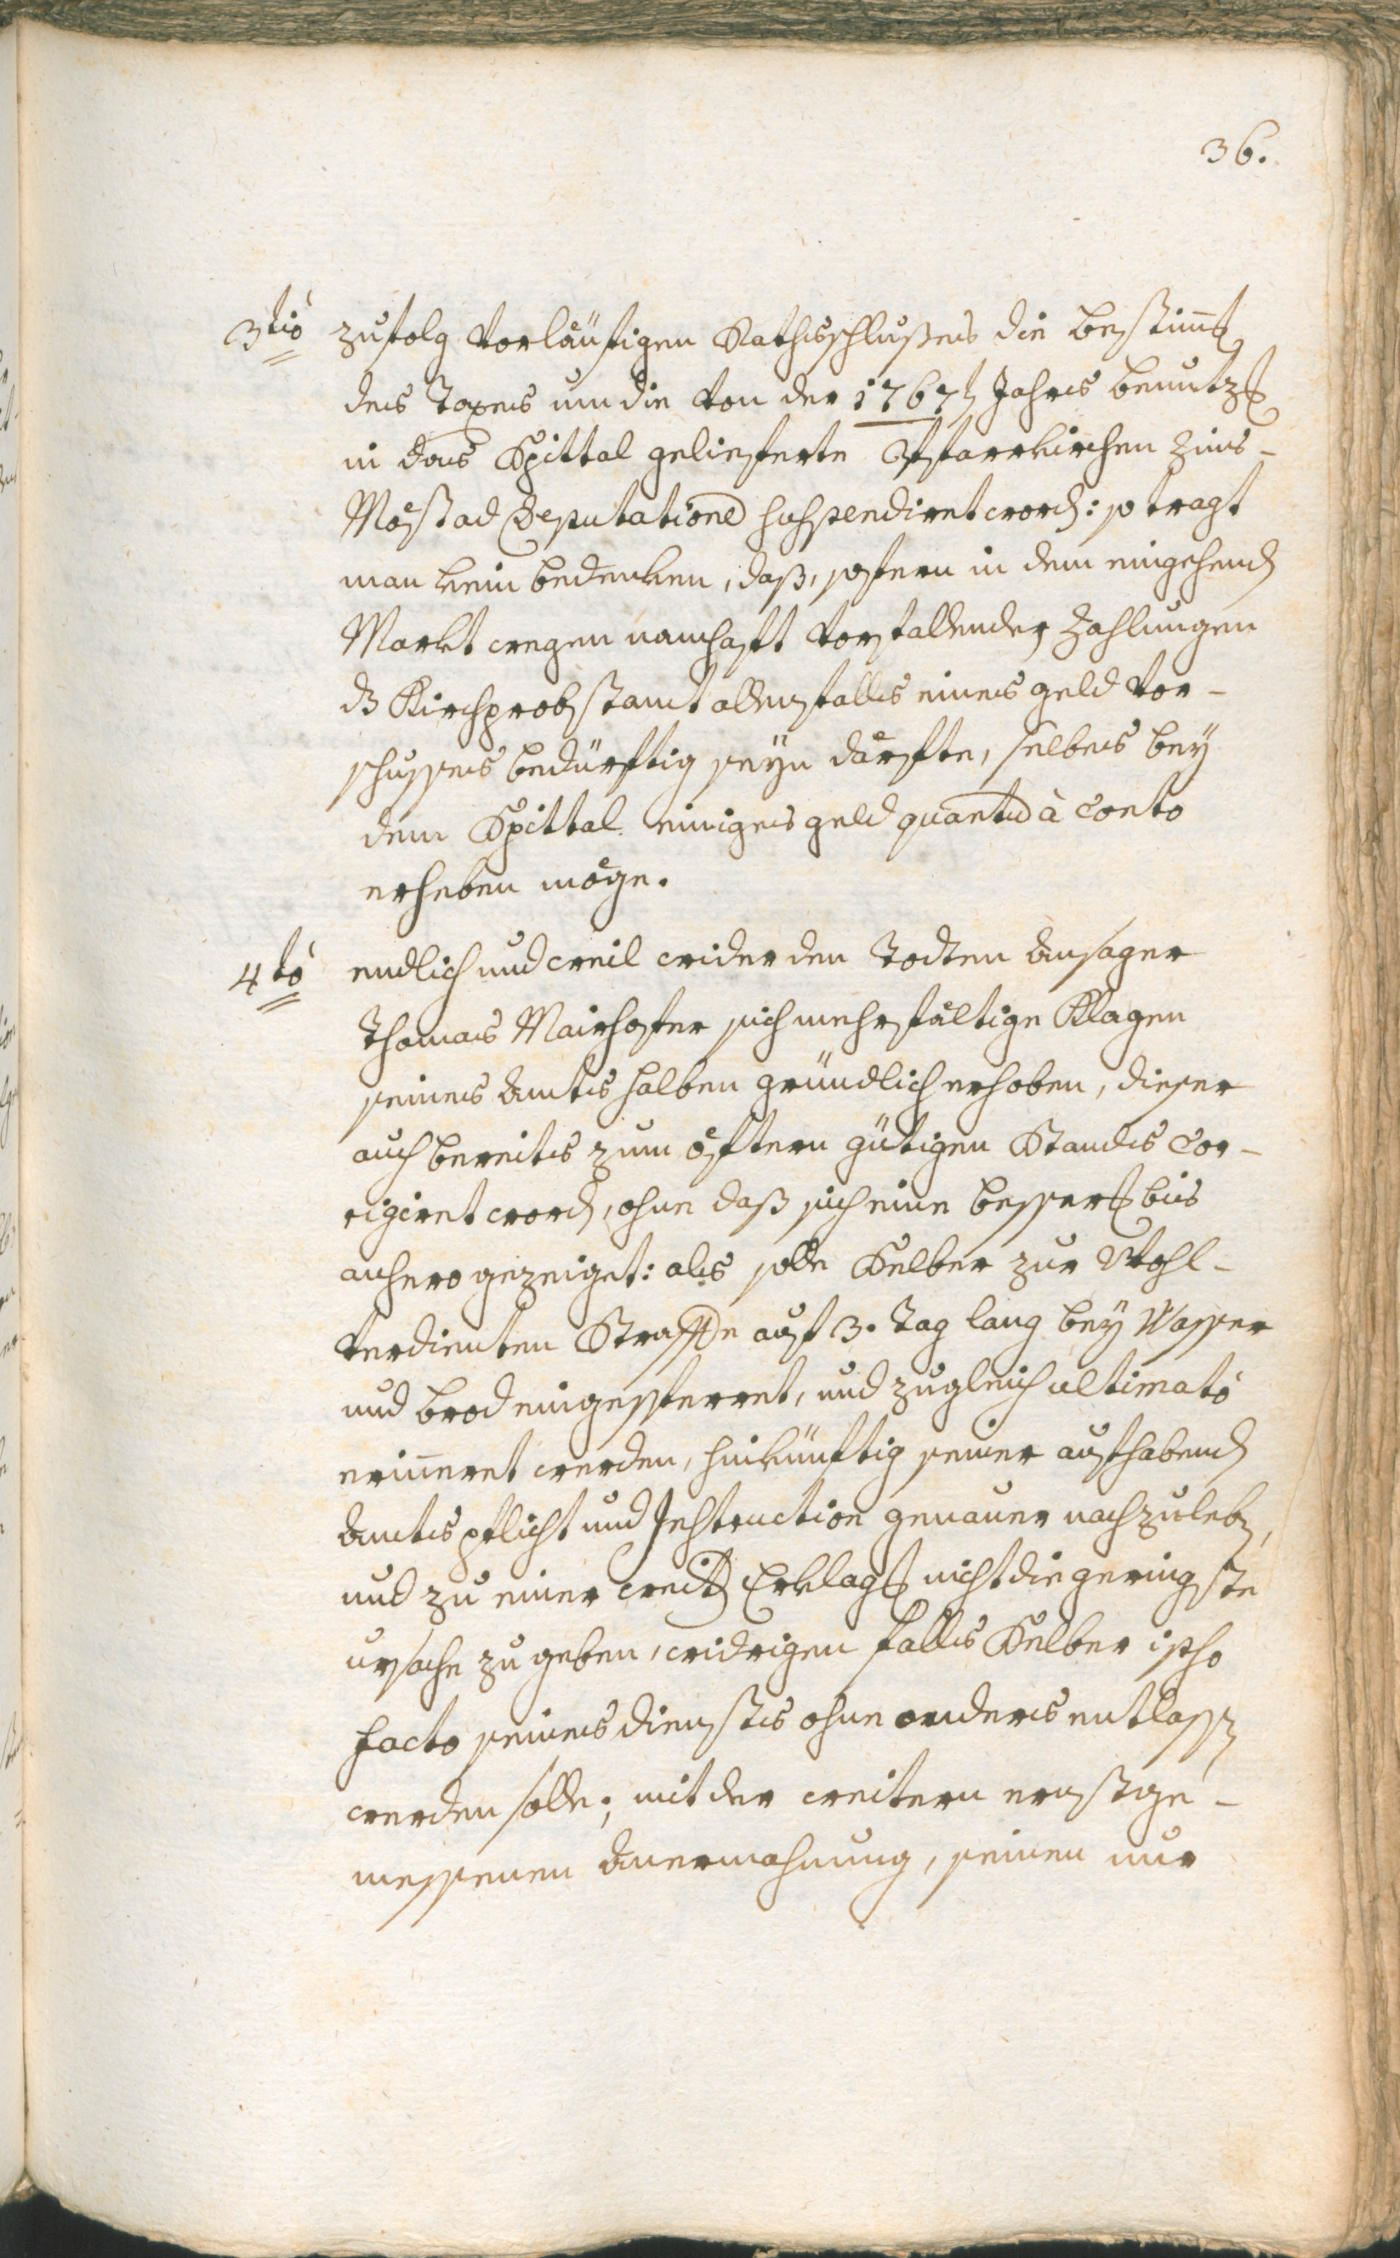 36.
3tiò zufolg vorläufigen Rathsschlußes die bestim̄g
des Taxes um die von der 1767 Jahrs benutzg
in das Spittal gelieferte Pfarrkirchen Zins-
Möst ad Deputatione suspendiret word: so tragt
man kein bedenken, daß, sofern in dem eingehend
Markt wegen namhaft vorfallender Zahlungen
dz Kirchprobstamt allenfalls eines geld vor-
schusses bedürftig seyn dörfte, selbes bey
dem Spittal einiges geld quantu à Conto
erheben möge.
4tò endlich und weil wider den Todten ansager
Thomas Mairhofer sich mehrfältige Klagen
seines Amts halben gründlich erhoben, dieser
auch bereits zum öftern gütigen Stands Cor-
rigiret word, ohne daß sich eine besserg bis
anhero gezeiget: als solle Selber zur Wohl-
verdienten Straffe auf 3. Tag lang bey Wasser
und brod eingesperret, und zugleich ultimatò
erin̄eret werden, hinkünftig seiner aufhabend
Amtspflicht und Instruction genauer nachzuleb,
und zu einer weit Erklagg nicht die geringste
ursache zu geben, widrigen falls Selber ipso
facto seines diensts ohne anders entlass
werden solle; mit der weitern ernstge-
messenen Anermahnung, seinen nur